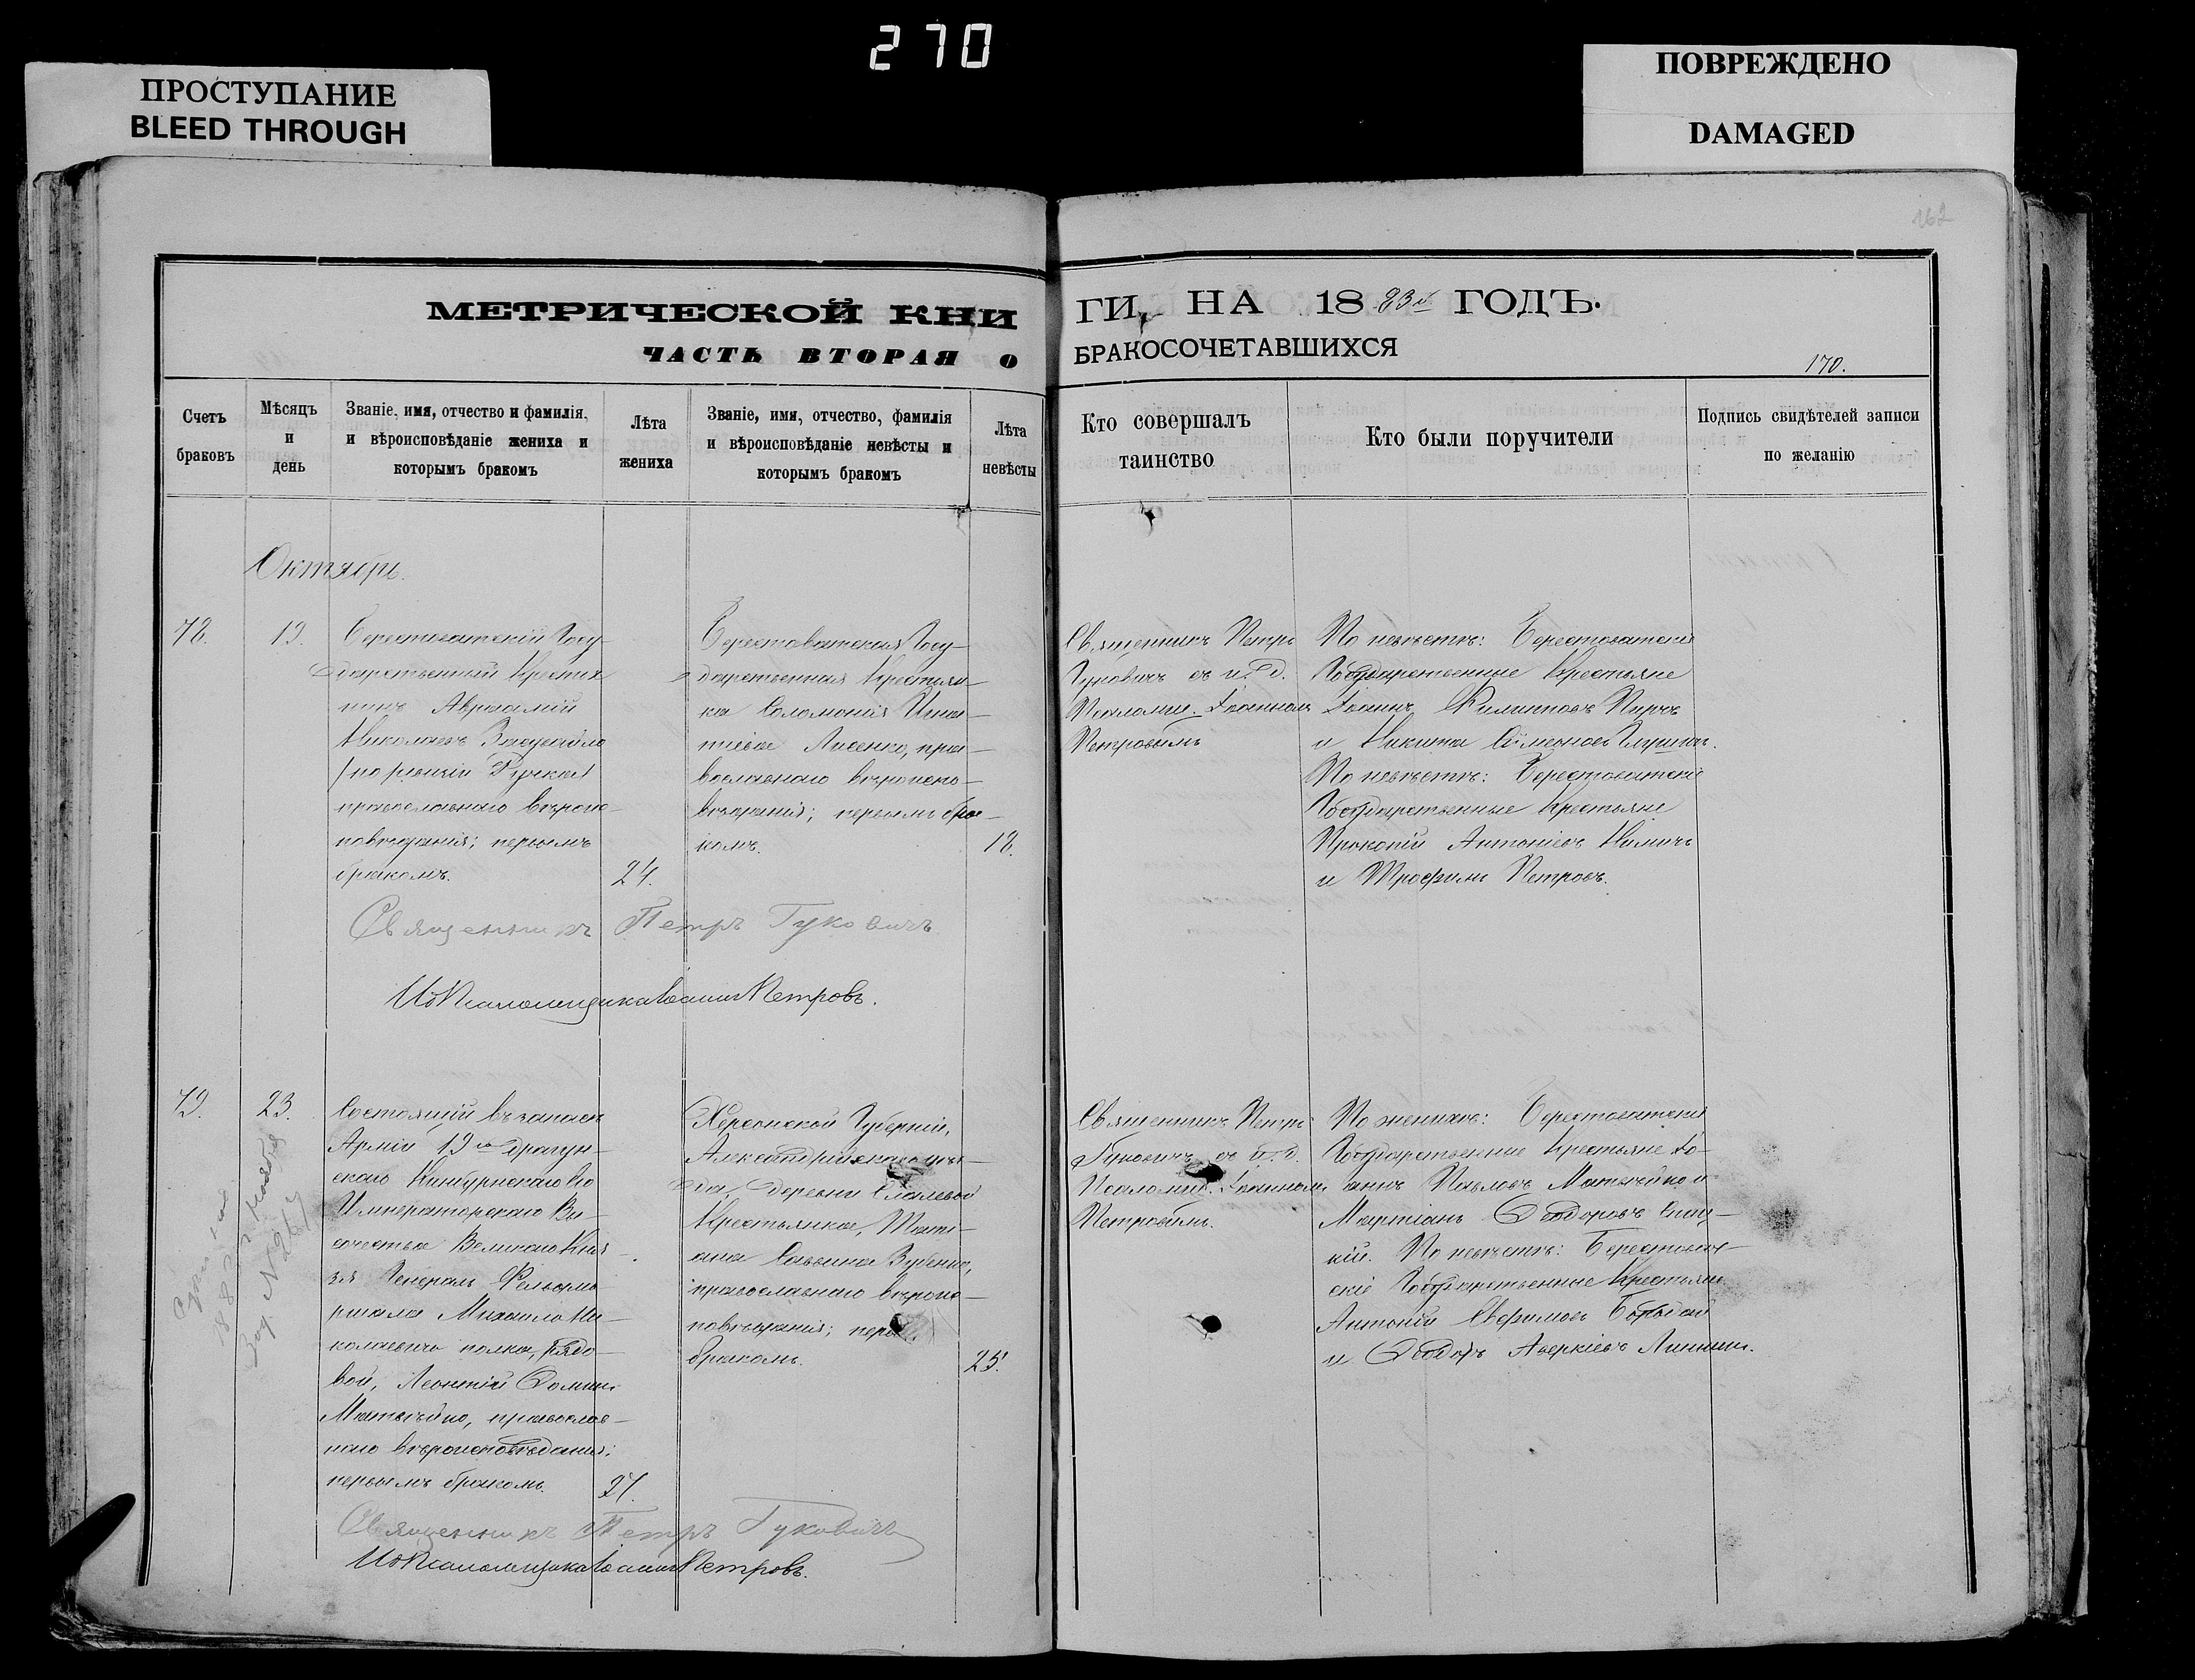 270
ПРОСТУПАНИЕ
BLEED THROUGH
ПОВРЕЖДЕНО
DAMAGED
162
МЕТРИЧЕСКОЙ КНИ
ГИ, НА 1883й ГОДЪ.
ЧАСТЬ ВТОРАЯ О
БРАКОСОЧЕТАВШИХСЯ
170.
Счетъ
браковъ
Мѣсяцъ
и
день
Званіе, имя, отчество и фамилія,
и вѣроисповѣданіе жениха и
которымъ бракомъ
Лѣта
жениха
Званіе, имя, отчество, фамилія
и вѣроисповѣданіе невѣсты и
которымъ бракомъ
Лѣта
невѣсты
Кто совершалъ
таинство
Кто были поручители
Подпись свидѣтелей записи
по желанію
Октябрь.
Берестоватскій Госу-
дарственный Крестья
нинъ
Николаевъ
православнаго вѣроис-
повѣданія; первымъ
бракомъ.
24.
Берестоватская Госу-
дарственная Крестьян-
ка Соломонія Игна-
тіева Лисенко, пра-
вославнаго вѣроиспо-
вѣданія; первымъ бра-
комъ.
18.
Священникъ Петръ
Гуковичъ съ и. д.
Псаломщ. Іоанномъ
Петровымъ
По невѣстѣ: Берестоватскіе
Государственные Крестьяне
Іоаннъ Филипповъ
и Никита
По невѣстѣ: Берестоватскіе
Государственные Крестьяне
Прокопій Антоніевъ
и Трофимъ Петровъ.
Священникъ Петръ Гуковичъ
ИдПсаломщика Іоаннъ Петровъ.
23.
Состоящій въ запасѣ
Арміи 19го драгун-
скаго Кинбурнскаго Его
Императорскаго Вы-
сочества Великаго Кня-
зя Генералъ Фельдма-
ршала Михаила Ни-
колаевича полка, рядо-
вой, Леонтій
Матвѣйко, православ-
наго вѣроисповѣданія;
первымъ бракомъ.
27.
Херсонской Губерніи,
Александрійскаго уѣз-
да, деревни
Крестьянка, Тать-
яна Саввина Зубенко,
православнаго вѣроис-
повѣданія;
бракомъ.
25.
Священникъ Петръ
Гуковичъ съ и. д.
Псаломщ. Іоанномъ
Петровымъ.
По женихѣ: Берестоватскіе
Государственные Крестьяне Іо-
аннъ Павловъ Матвѣйко и
Мартіанъ Ѳеодоровъ
По невѣстѣ: Берестоват-
скіе Государственные Крестьяне
Антоній Евфимовъ
и Ѳеодоръ Аверкіевъ
Священникъ Петръ Гуковичъ
ИдПсаломщика Іоаннъ Петровъ.